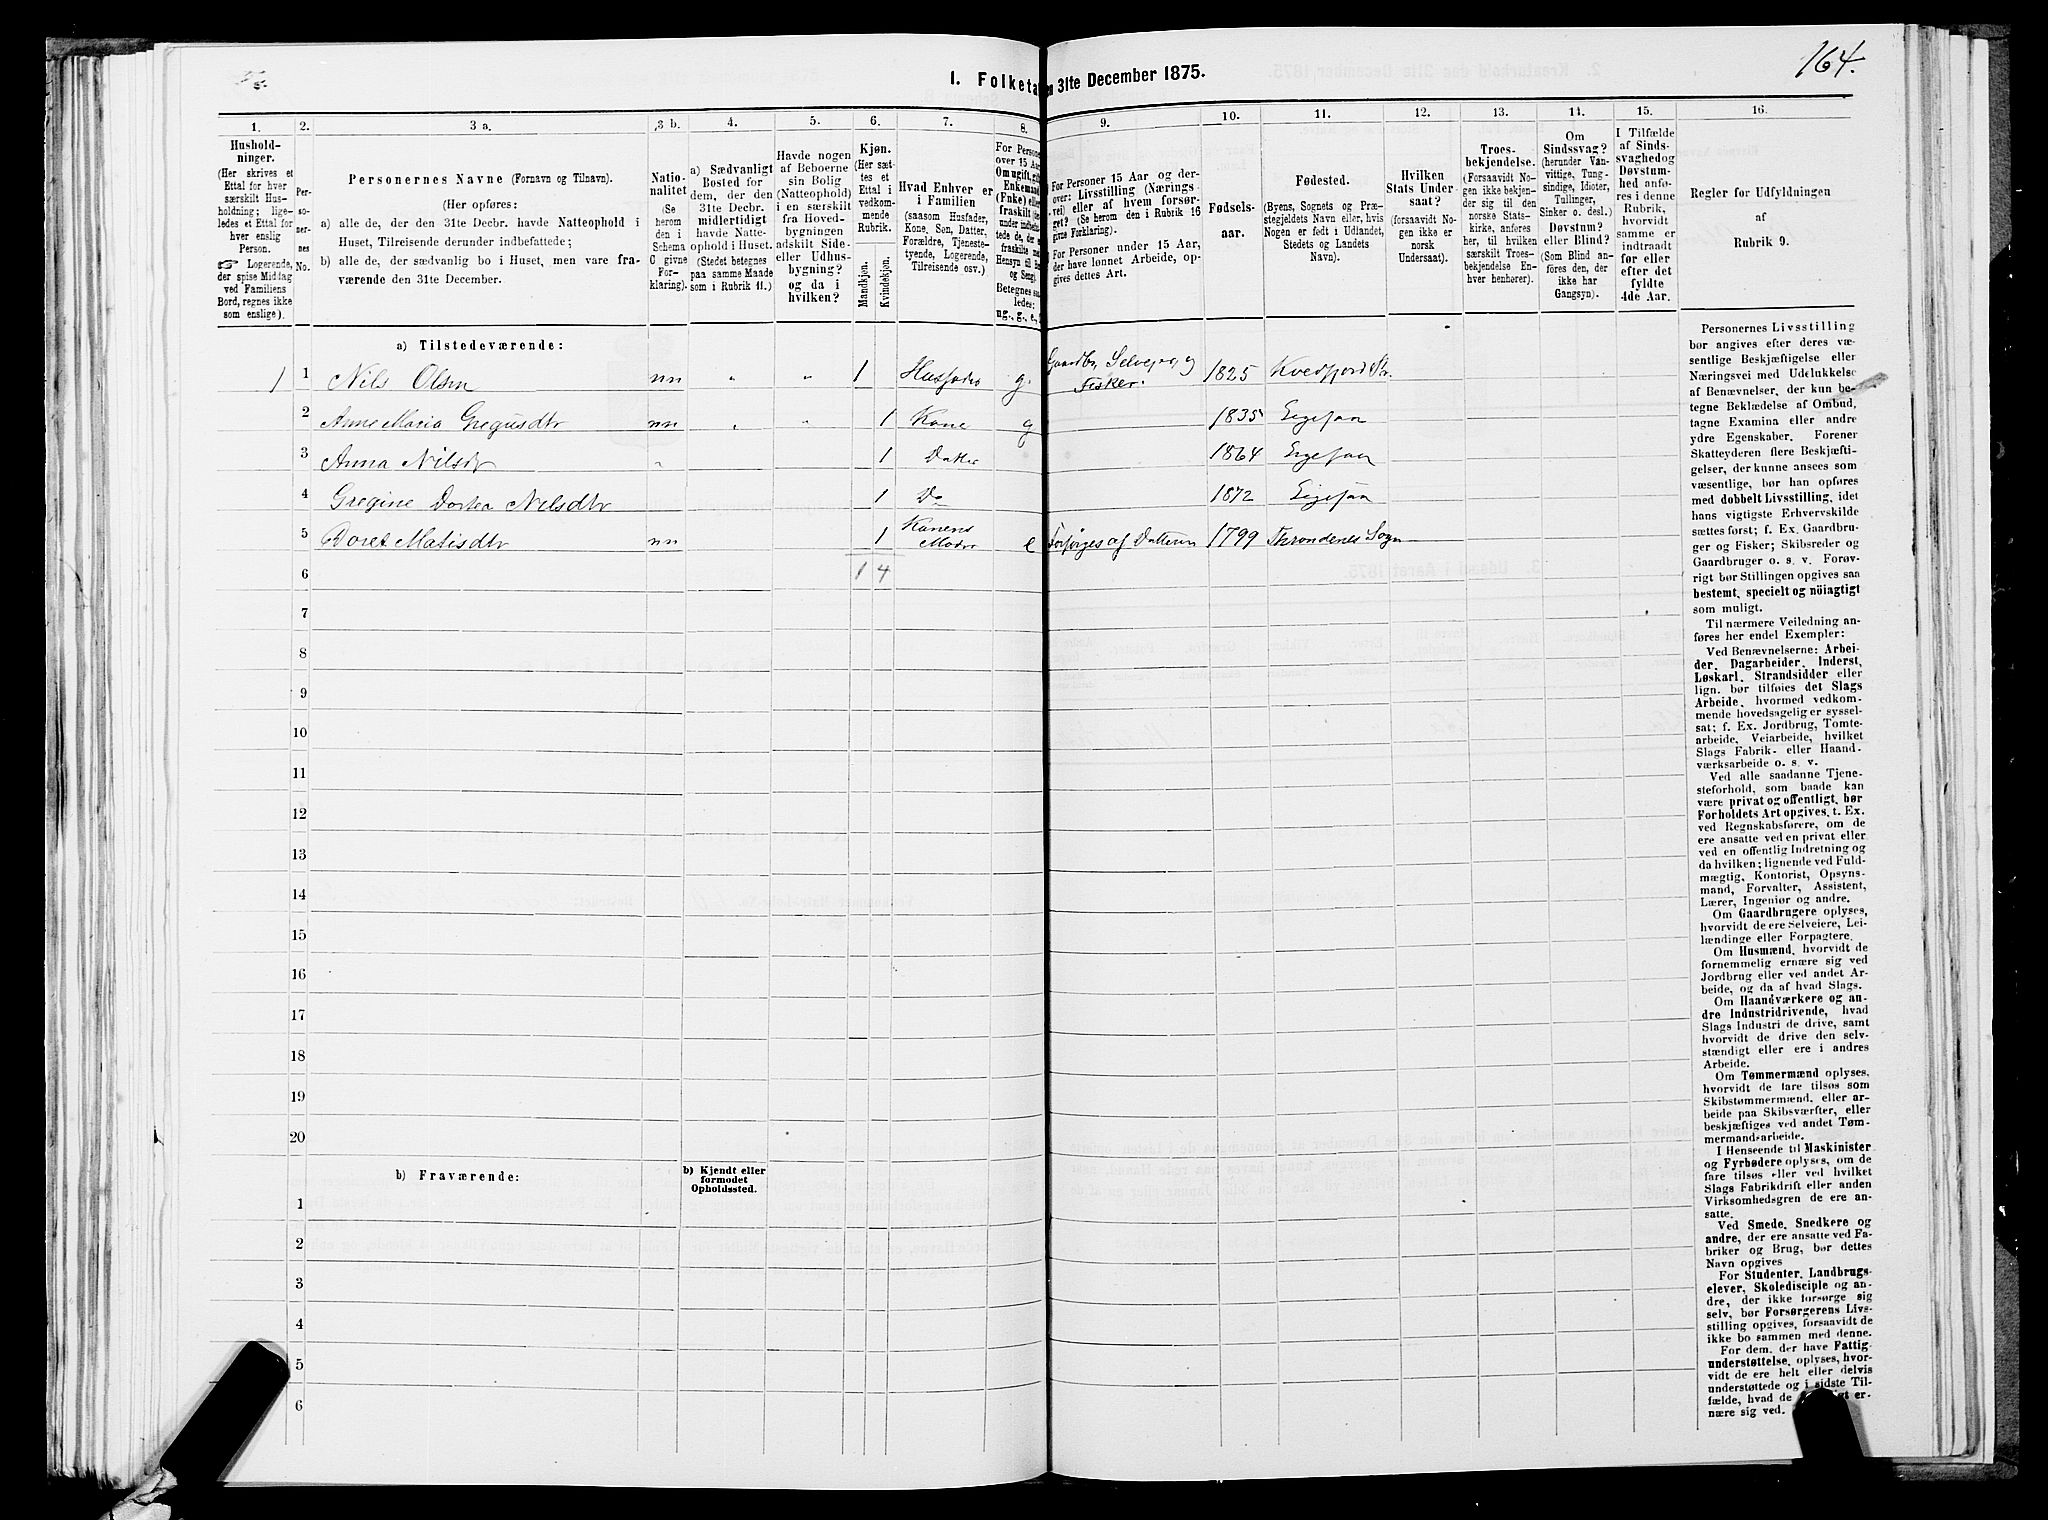 164.
I. Folketal den 31te December 1875.
1. 2. 3 a. 3 b. 4. 5. 6. 7. 8. 9. 10. 11. 12. 13. 14. 15. 16.
Hushold-
ninger.
(Her skrives et
Ettal for hver
særskilt Hus-
holdning; lige-
ledes et Ettal for
hver enslig
Person.
☞ Logerende,
der spise Middag
ved Familiens
Bord, regnes ikke
som enslige).
Per-
so-
ner-
nes
No.
Personernes Navne (Fornavn og Tilnavn).
(Her opføres:
a) alle de, der den 31te Decbr. havde Natteophold i
Huset, Tilreisende derunder indbefattede;
b) alle de, der sædvanlig bo i Huset, men vare fra-
værende den 31te December.
Natio-
nalitet
(Se
herom
den i
Schema
C givne
For-
klaring).
a) Sædvanligt
Bosted for
dem, der den
31te Decbr.
midlertidigt
havde Natte-
ophold i Huset.
(Stedet betegnes
paa samme Maade
som i Rubrik 11.)
Havde nogen
af Beboerne
sin Bolig
(Natteophold)
i en særskilt
fra Hoved-
bygningen
adskilt Side-
eller Udhus-
bygning?
og da i
hvilken?
Kjøn.
(Her sæt-
tes et
Ettal i
vedkom-
mende
Rubrik.
Mandkjøn.
Kvindekjøn.
Hvad Enhver er
i Familien
(saasom Husfader,
Kone, Søn, Datter,
Forældre, Tjeneste-
tyende, Logerende,
Tilreisende osv.)
For Personer
over 15 Aar
Omugift, gift
Enkemand
(Enke) eller
fraskilt
Betegnes saa-
ledes:
ug., g., e., f.
For Personer 15 Aar og der-
over: Livsstilling (Nærings-
vei) eller af hvem forsør-
get? (Se herom den i Rubrik 16
givne Forklaring).
For Personer under 15 Aar,
der have lønnet Arbeide, op-
gives dettes Art.
Fødsels-
aar.
Fødested.
(Byens, Sognets og Præ-
stegjeldets Navn eller, hvis
Nogen er født i Udlandet,
Stedets og Landets
Navn).
Hvilken
Stats Under-
saat?
(forsaavidt No-
gen ikke er
norsk
Undersaat).
Troes-
bekjendelse.
(Forsaavidt No-
gen ikke bekjen-
der sig til den
norske Stats-
kirke, anføres
her, til hvilken
særskilt Troes-
bekjendelse En-
hver henhører).
Om
Sindssvag?
(herunder Van-
vittige, Tung-
sindige, Idioter,
Tullinger,
Sinker o. desl.)
Døvstum?
eller Blind?
(Som Blind an-
føres den, der
ikke har
Gangsyn).
I Tilfælde
af Sinds-
svaghed og
Døvstum-
hed anfø-
res i denne
Rubrik,
hvorvidt
samme er
indtraadt
før eller
efter det
fyldte
4de Aar.
Regler for Udfyldningen
af
Rubrik 9.
a) Tilstedeværende:
1 1 Nils Olsen nn „ „ 1 Husfader g. Gaardbr, Selveier, og Fisker. 1825 Kvedfjord Sr.
2 Anne Maria Gregusdtr nn „ „ 1 Kone g 1835 Ligesaa
3 Anna Nilsdtr „ 1 Datter 1864 Ligesaa
4 Gregine Dortea Nilsdtr 1 Do 1872 Ligesaa
5 Doret Matisdtr nn 1 Konens Moder e Forsørges af Datteren 1799 Throndenes Sogn
6 1 4
7
8
9
10
11
12
13
14
15
16
17
18
19
20
b) Fraværende:
b) Kjendt eller
formodet
Opholdssted.
1
2
3
4
5
6
Personernes Livsstilling
bør angives efter deres væ-
sentlige Beskjæftigelse eller
Næringsvei med Udelukkelse
af Benævnelser, der kun be-
tegne Beklædelse af Ombud,
tagne Examina eller andre
ydre Egenskaber. Forener
Skatteyderen flere Beskjæfti-
gelser, der kunne ansees som
væsentlige, bør han opføres
med dobbelt Livsstilling, idet
hans vigtigste Erhvervskilde
sættes først; f. Ex. Gaardbru-
ger og Fisker; Skibsreder og
Gaardbruger o. s. v. Forøv-
rigt bør Stillingen opgives saa
bestemt, specielt og nöiagtigt
som muligt.
Til nærmere Veiledning an-
føres her endel Exempler:
Ved Benævnelserne: Arbei-
der, Dagarbeider, Inderst,
Løskarl, Strandsidder eller
lign. bør tilføies det Slags
Arbeide, hvormed vedkom-
mende hovedsagelig er syssel-
sat; f. Ex. Jordbrug, Tomte-
arbeide, Veiarbeide, hvilket
Slags Fabrik- eller Haand-
værksarbeide o. s. v.
Ved alle saadanne Tjene-
steforhold, som baade kan
være privat og offentligt, bør
Forholdets Art opgives, t. Ex.
ved Regnskabsførere, om de
ere ansatte ved en privat eller
ved en offentlig Indretning og
da hvilken; lignende ved Fuld-
mægtig, Kontorist, Opsyns-
mand, Forvalter, Assistent,
Lærer, Ingeniør og andre.
Om Gaardbrugere oplyses,
hvorvidt de ere Selveiere, Lei-
lændinge eller Forpagtere.
Om Husmænd, hvorvidt de
fornemmelig ernære sig ved
Jordbrug eller ved andet Ar-
beide, og da af hvad Slags.
Om Haandværkere og an-
dre Industridrivende, hvad
Slags Industri de drive, samt
hvorvidt de drive den selv-
stændigt eller ere i andres
Arbeide.
Om Tømmermænd oplyses,
hvorvidt de fare tilsøs som
Skibstømmermænd, eller ar-
beide paa Skibsværfter, eller
beskjæftiges ved andet Tøm-
mermandsarbeide.
I Henseende til Maskinister
og Fyrbødere oplyses, om de
fare tilsøs eller ved hvilket
Slags Fabrikdrift eller anden
Virksomhedsgren de ere an-
satte.
Ved Smede, Snedkere og
andre, der ere ansatte ved Fa-
briker og Brug, bør dettes
Navn opgives
For Studenter, Landbrugs-
elever, Skoledisciple og an-
dre, der ikke forsørge sig
selv, bør Forsørgerens Livs-
stilling opgives, forsaavidt de
ikke bo sammen med denne.
For dem, der have Fattig-
understøttelse, oplyses, hvor-
vidt de ere helt eller delvis
understøttede og i sidste Til-
fælde, hvad de er-
nære sig ved.